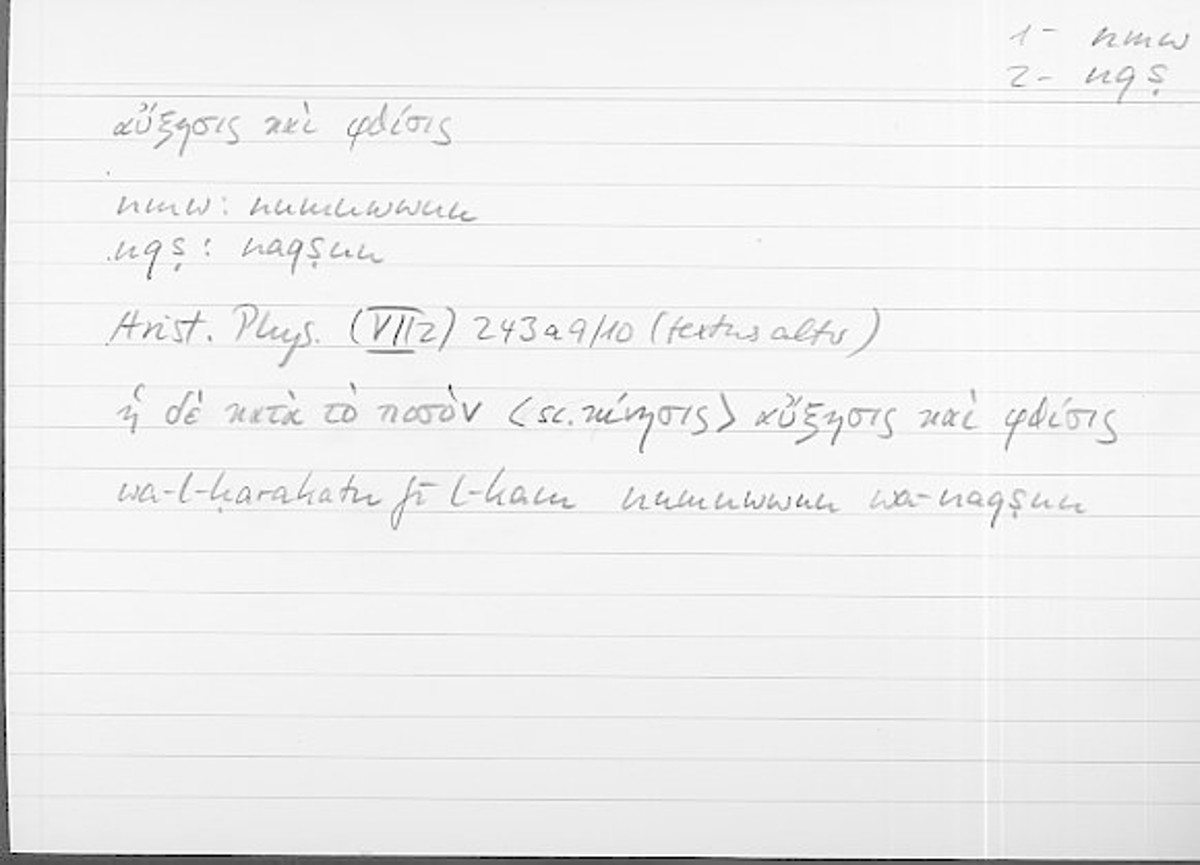 1- nmw
2- nqṣ
αὔξησις καὶ φθίσις
nmw: numuwwun
nqṣ: naqṣun
Arist. Phys. (VII2) 243a9/10 (textus alter)
ἡ δὲ κατὰ τὸ ποσὸν <sc. κίνησις> αὔξησις καὶ φθίσις
wa-l-ḥarakatu fī l-kam numuwwun wa-naqṣun